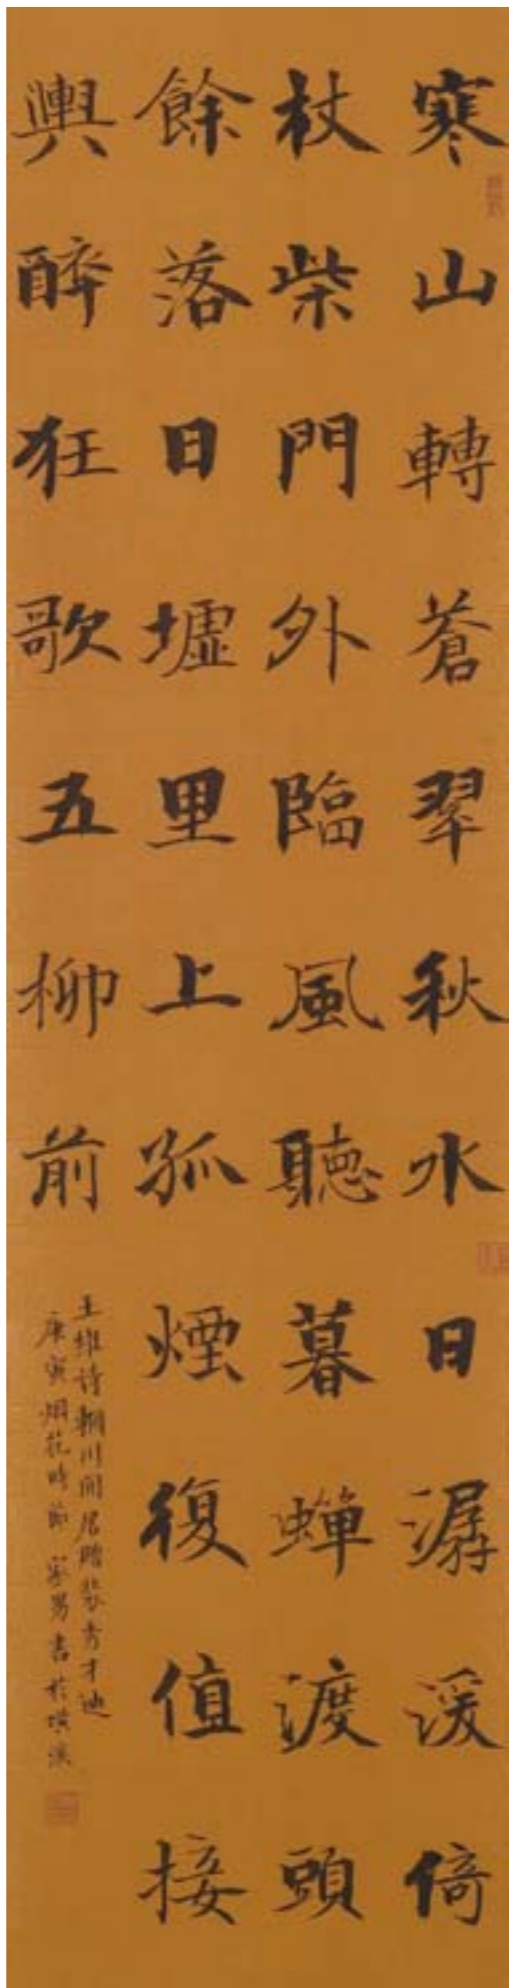 寒山轉蒼翠秋水日潺湲倚
杖柴門外臨風聽暮蟬渡頭
餘落日墟里上孤煙復值接
輿醉狂歌五柳前
王維诗輞川閒居贈裴秀才迪
庚寅烟花時節 書於